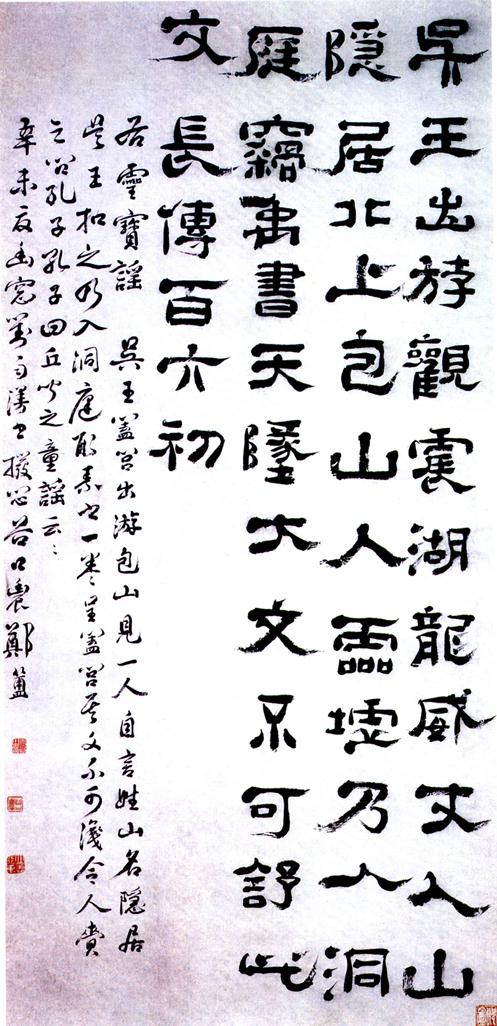 吳王出斿觀震湖龍威丈人山
隱居北上包山入靈墟乃入洞
庭竊禹書天墜大文不可舒此
文長傳百六初
右靈寶謠 吳王闔閭出游包山見一人自言姓山名隱居
吳王扣之乃入洞庭取素書一卷呈闔閭其文不可識令人賫
之問孔子孔子曰丘聞之童謠云云
辛未夏幽窓對雨漫書撥悶谷口農鄭簠